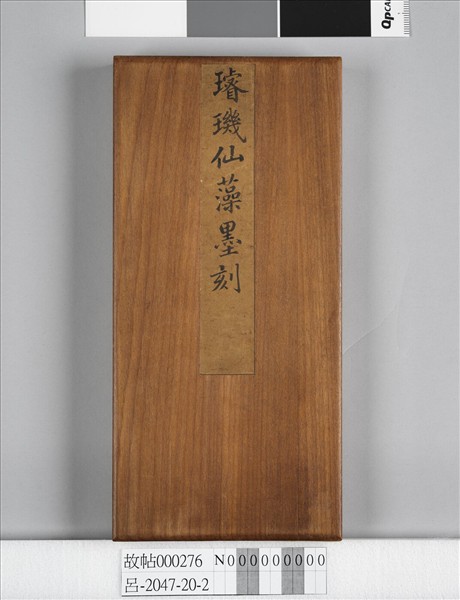 QpCA
璿璣仙藻墨刻
故帖000276
N000000000
呂-2047-20-2